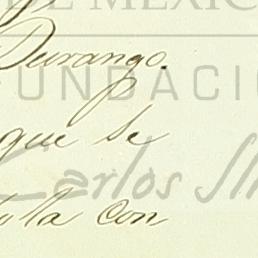 DE MÉXICO
Durango.
FUNDACI
que se
Carlos Sli
lla con